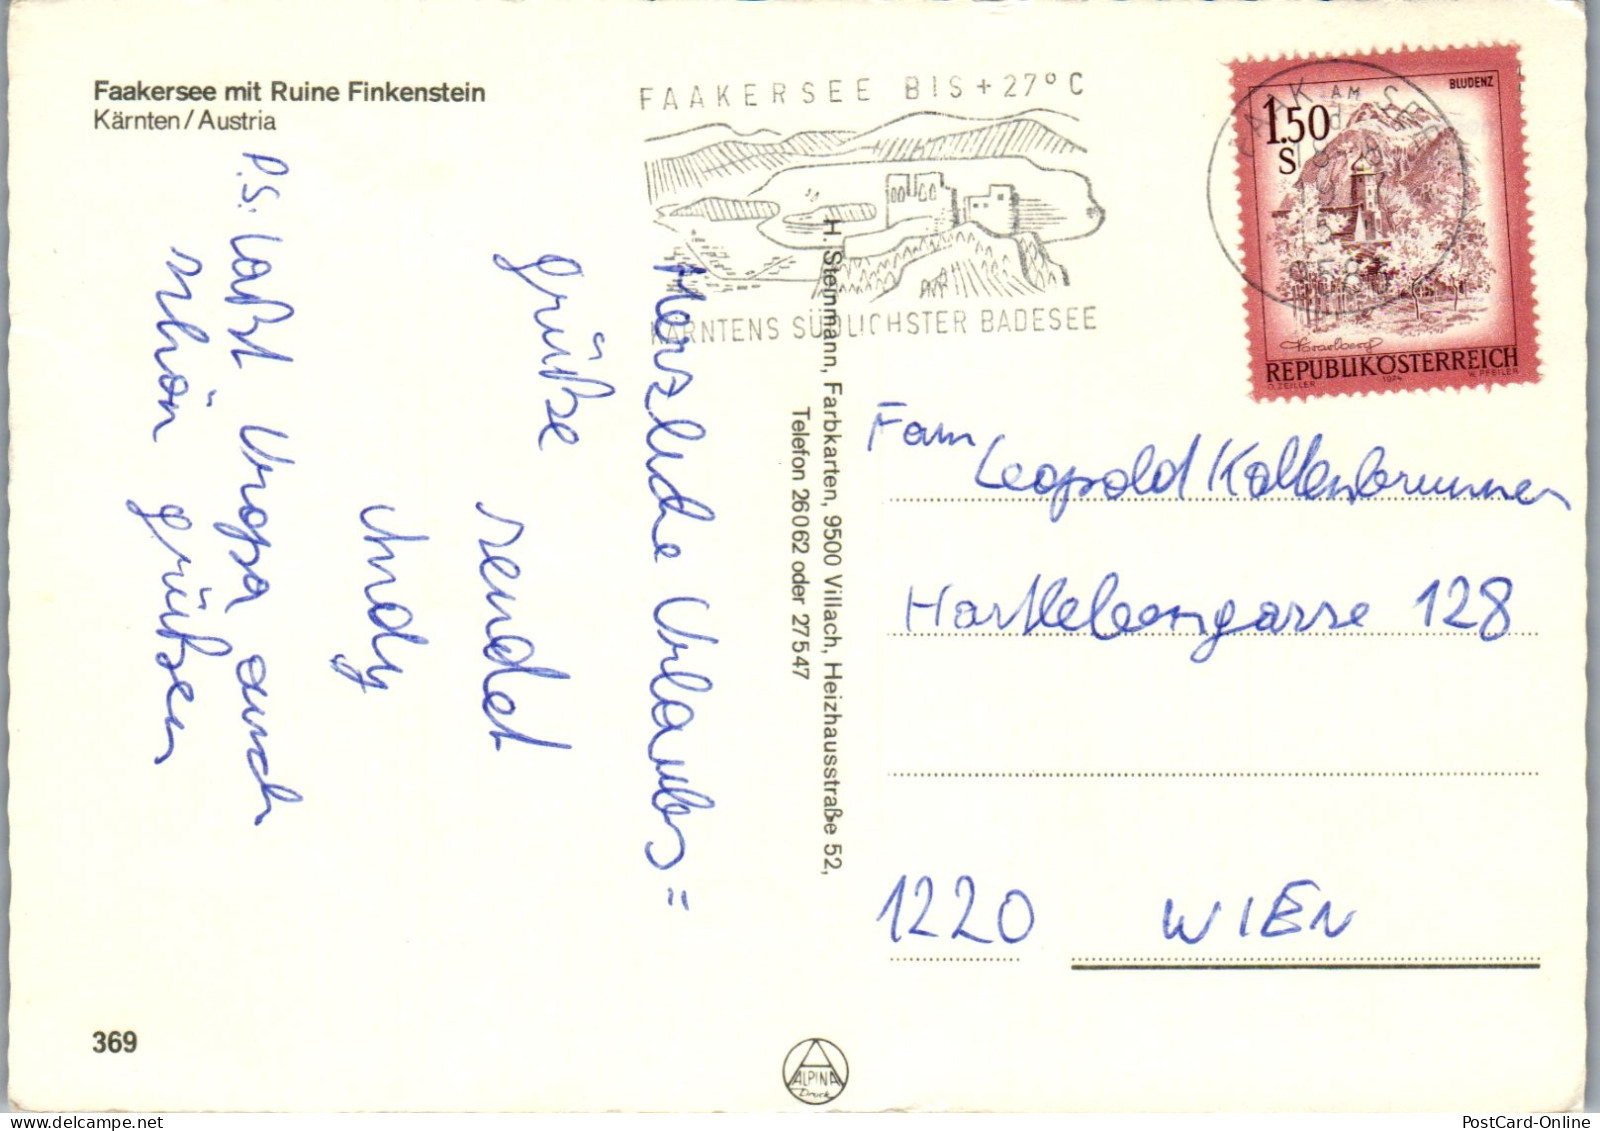 Faakersee mit Ruine Finkenstein
Kärnten/Austria
FAAKERSEE BIS + 27° C
KÄRNTENS SÜDLICHSTER BADESEE
AM
958
BLUDENZ
1.50
S
Vorarlberg
REPUBLIK ÖSTERREICH
O. ZEILLER 1974 W. PFEILER
Herzliche Urlaubs=
grüße
sendet
Andy
P.S. Laßt Uropa auch
schön grüßen
H. Steinmann, Farbkarten, 9500 Villach, Heizhausstraße 52,
Telefon 26062 oder 27547
Fam
Leopold Kaltenbrunner
Hartlebengasse 128
1220 WIEN
369
ALPINA
Druck
PostCard-Online